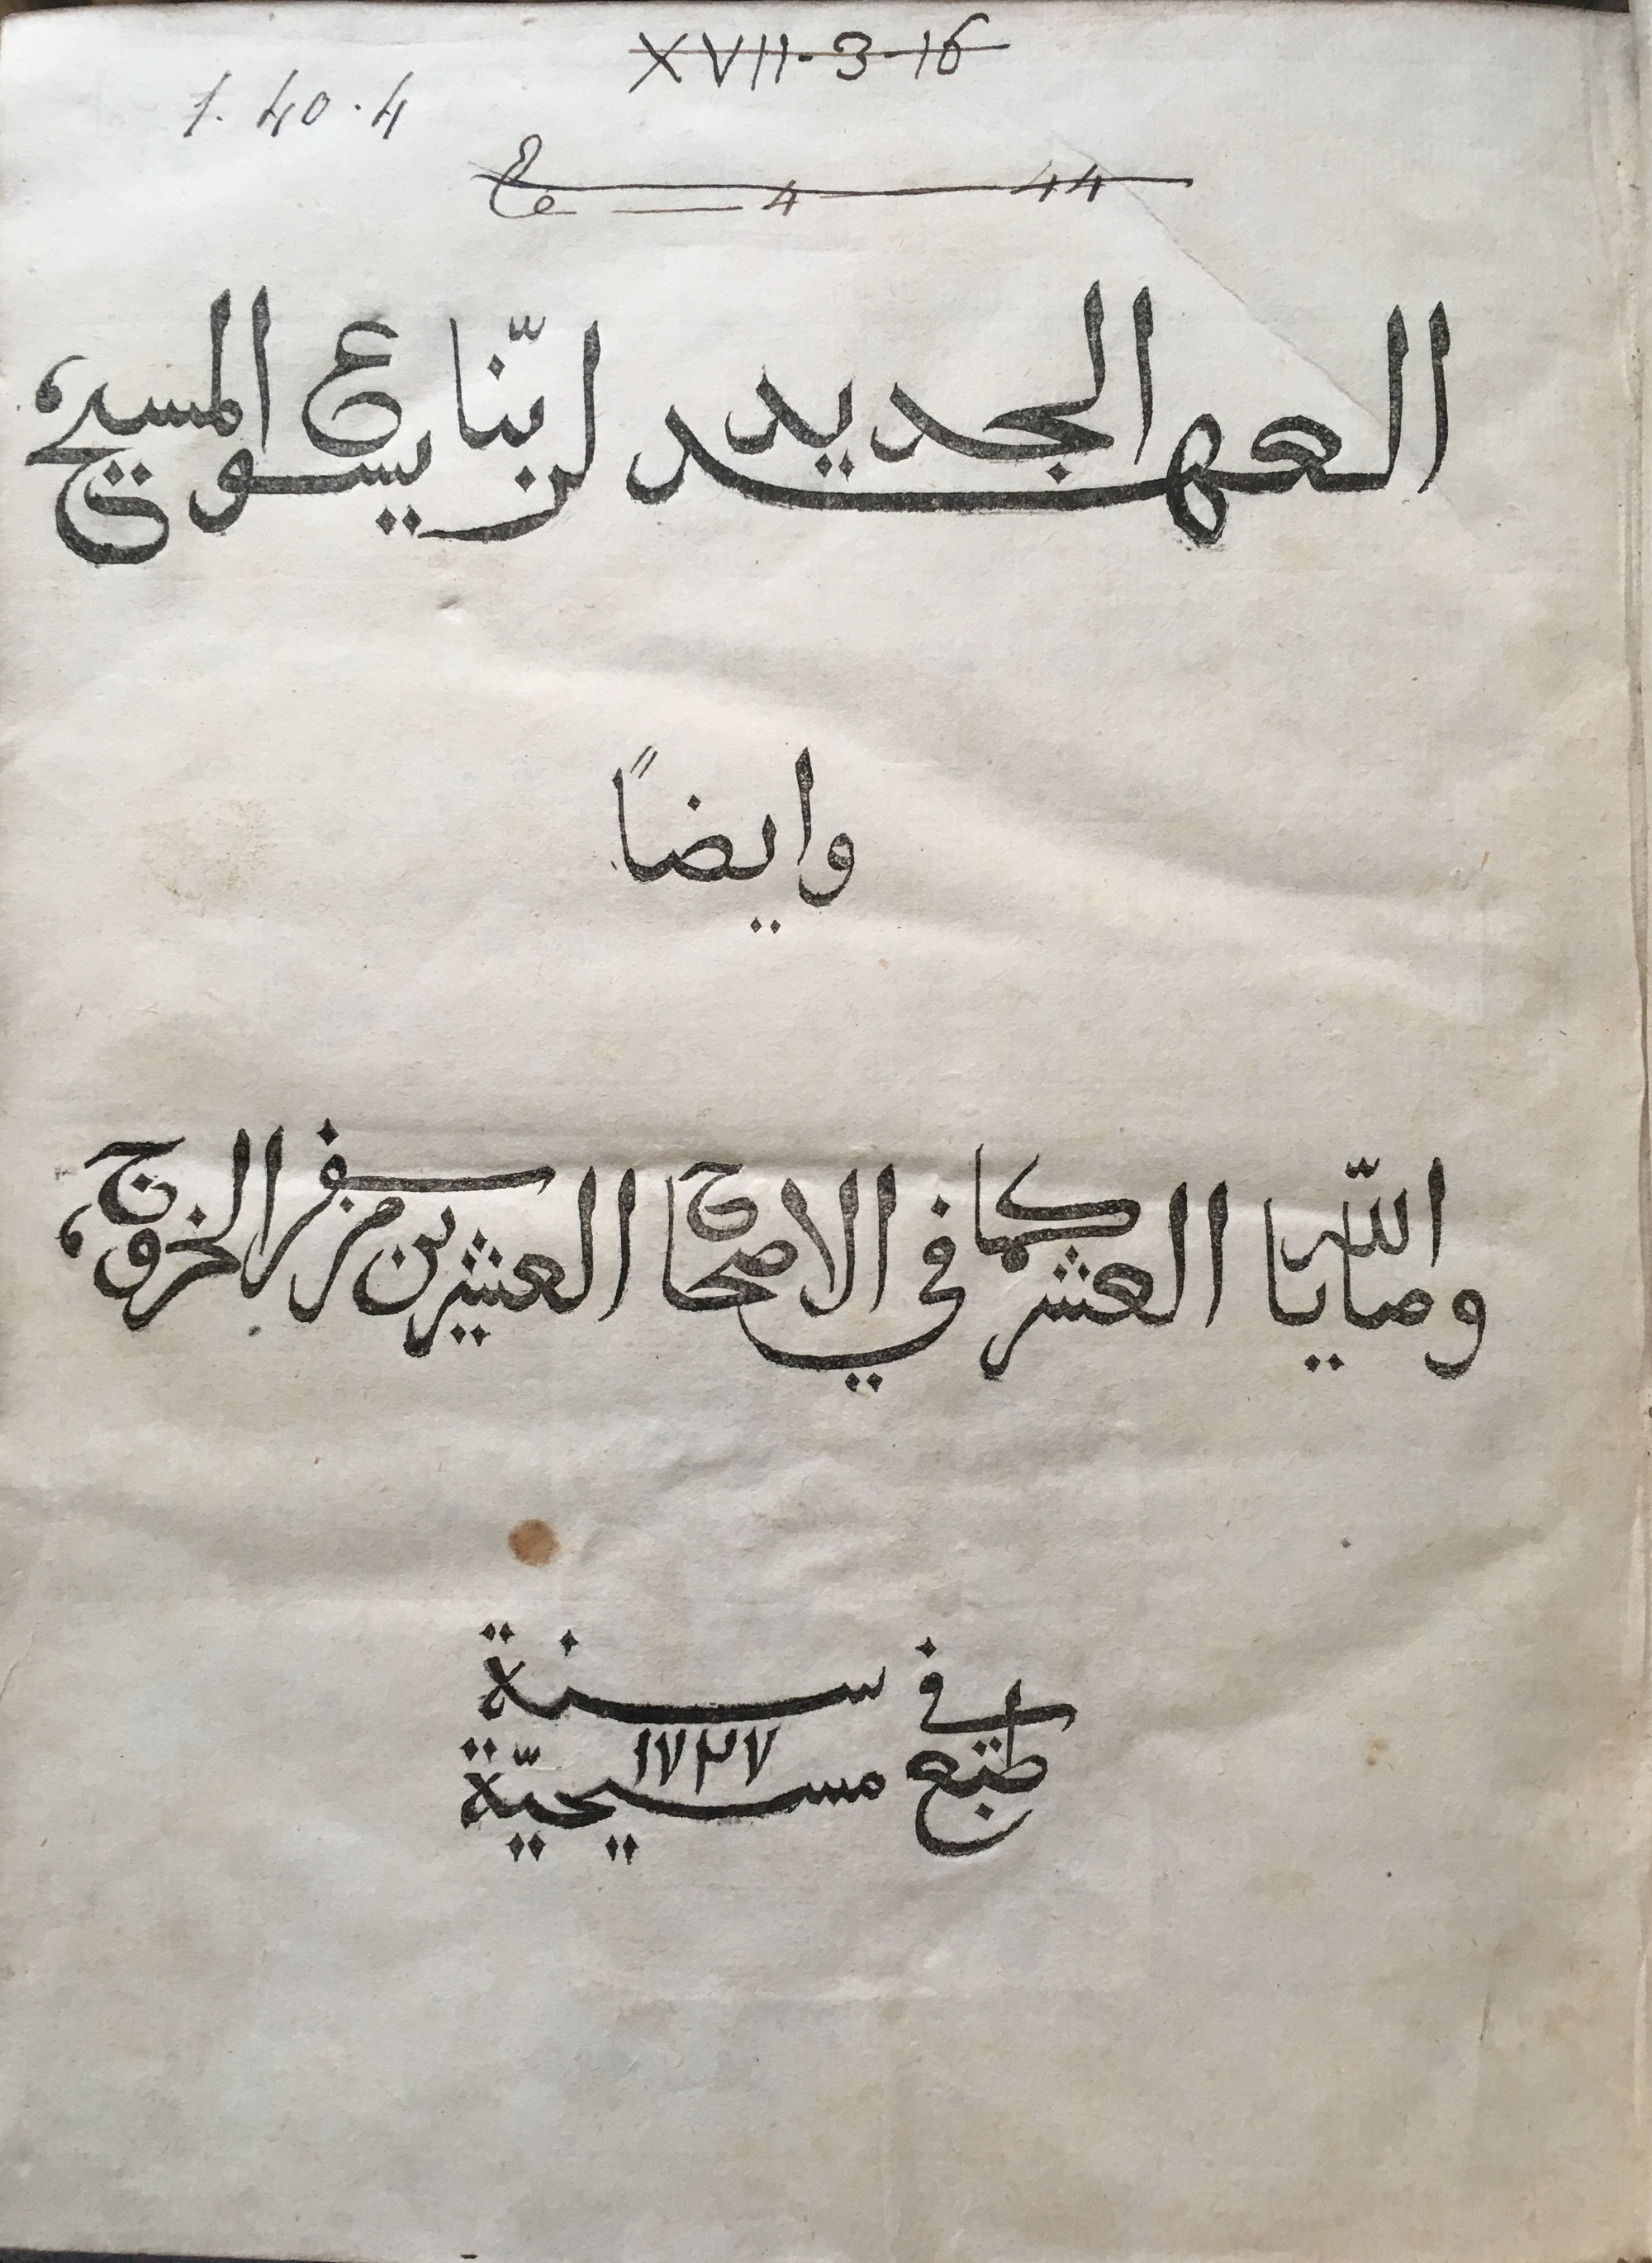 XVII-3-16
1. 40.4
4 44
العهد الجديد لربّنا يسوع المسيح،
وايضاً
وصايا اللّه العشر كما في الاصحاح العشرين من سفر الخروج،
طبع في سنة
١٧٢٧
مسيحيّة